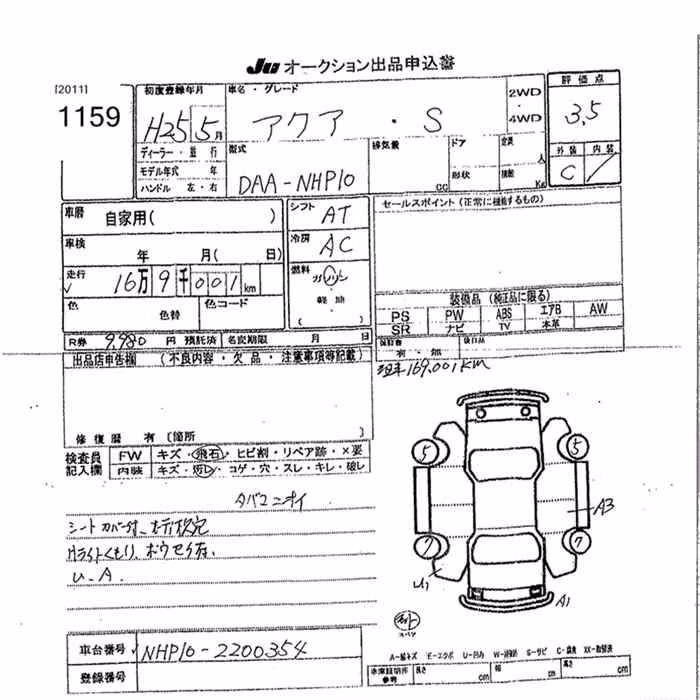 JU オークション出品申込書
[2011]
1159
初度登録年月
H25 5月
車名・グレード
アクア・S
2WD
4WD
評価点
3.5
外装 内装
C /
ディーラー・並行
モデル年式 年
ハンドル 左・右
型式
DAA-NHP10
排気量
cc
ドア
形状
定員 人
積載 Kg
車歴 自家用( )
シフト AT
セールスポイント(正常に機能するもの)
車検 年 月( 日)
冷房 AC
走行 16万9千001km
燃料 ガソリン
軽油
( )
色 色替 色コード
装備品(純正品に限る)
PS PW ABS エアB AW
SR ナビ TV 本革
R券 9,980 円 預託済 名変期限 月 日
保証書 有・無
後日品
出品店申告欄 (不良内容・欠品・注意事項等記載)
現車169,001km
修復歴 有 〔箇所
検査員記入欄
FW キズ・飛石・ヒビ割・リペア跡・×要
内装 キズ・汚レ・コゲ・穴・スレ・キレ・破レ
タバコニオイ
シートカバー付、
Hライトくもり、
U.A.
5 5
7 7
A3
U1
A1
スペア
車台番号 NHP10-2200354
登録番号
A-線キズ E-エクボ U-凹み W-補修跡 S-サビ C-腐食 XX-取替済
車庫証明用参考 長さ cm 幅 cm 高さ cm